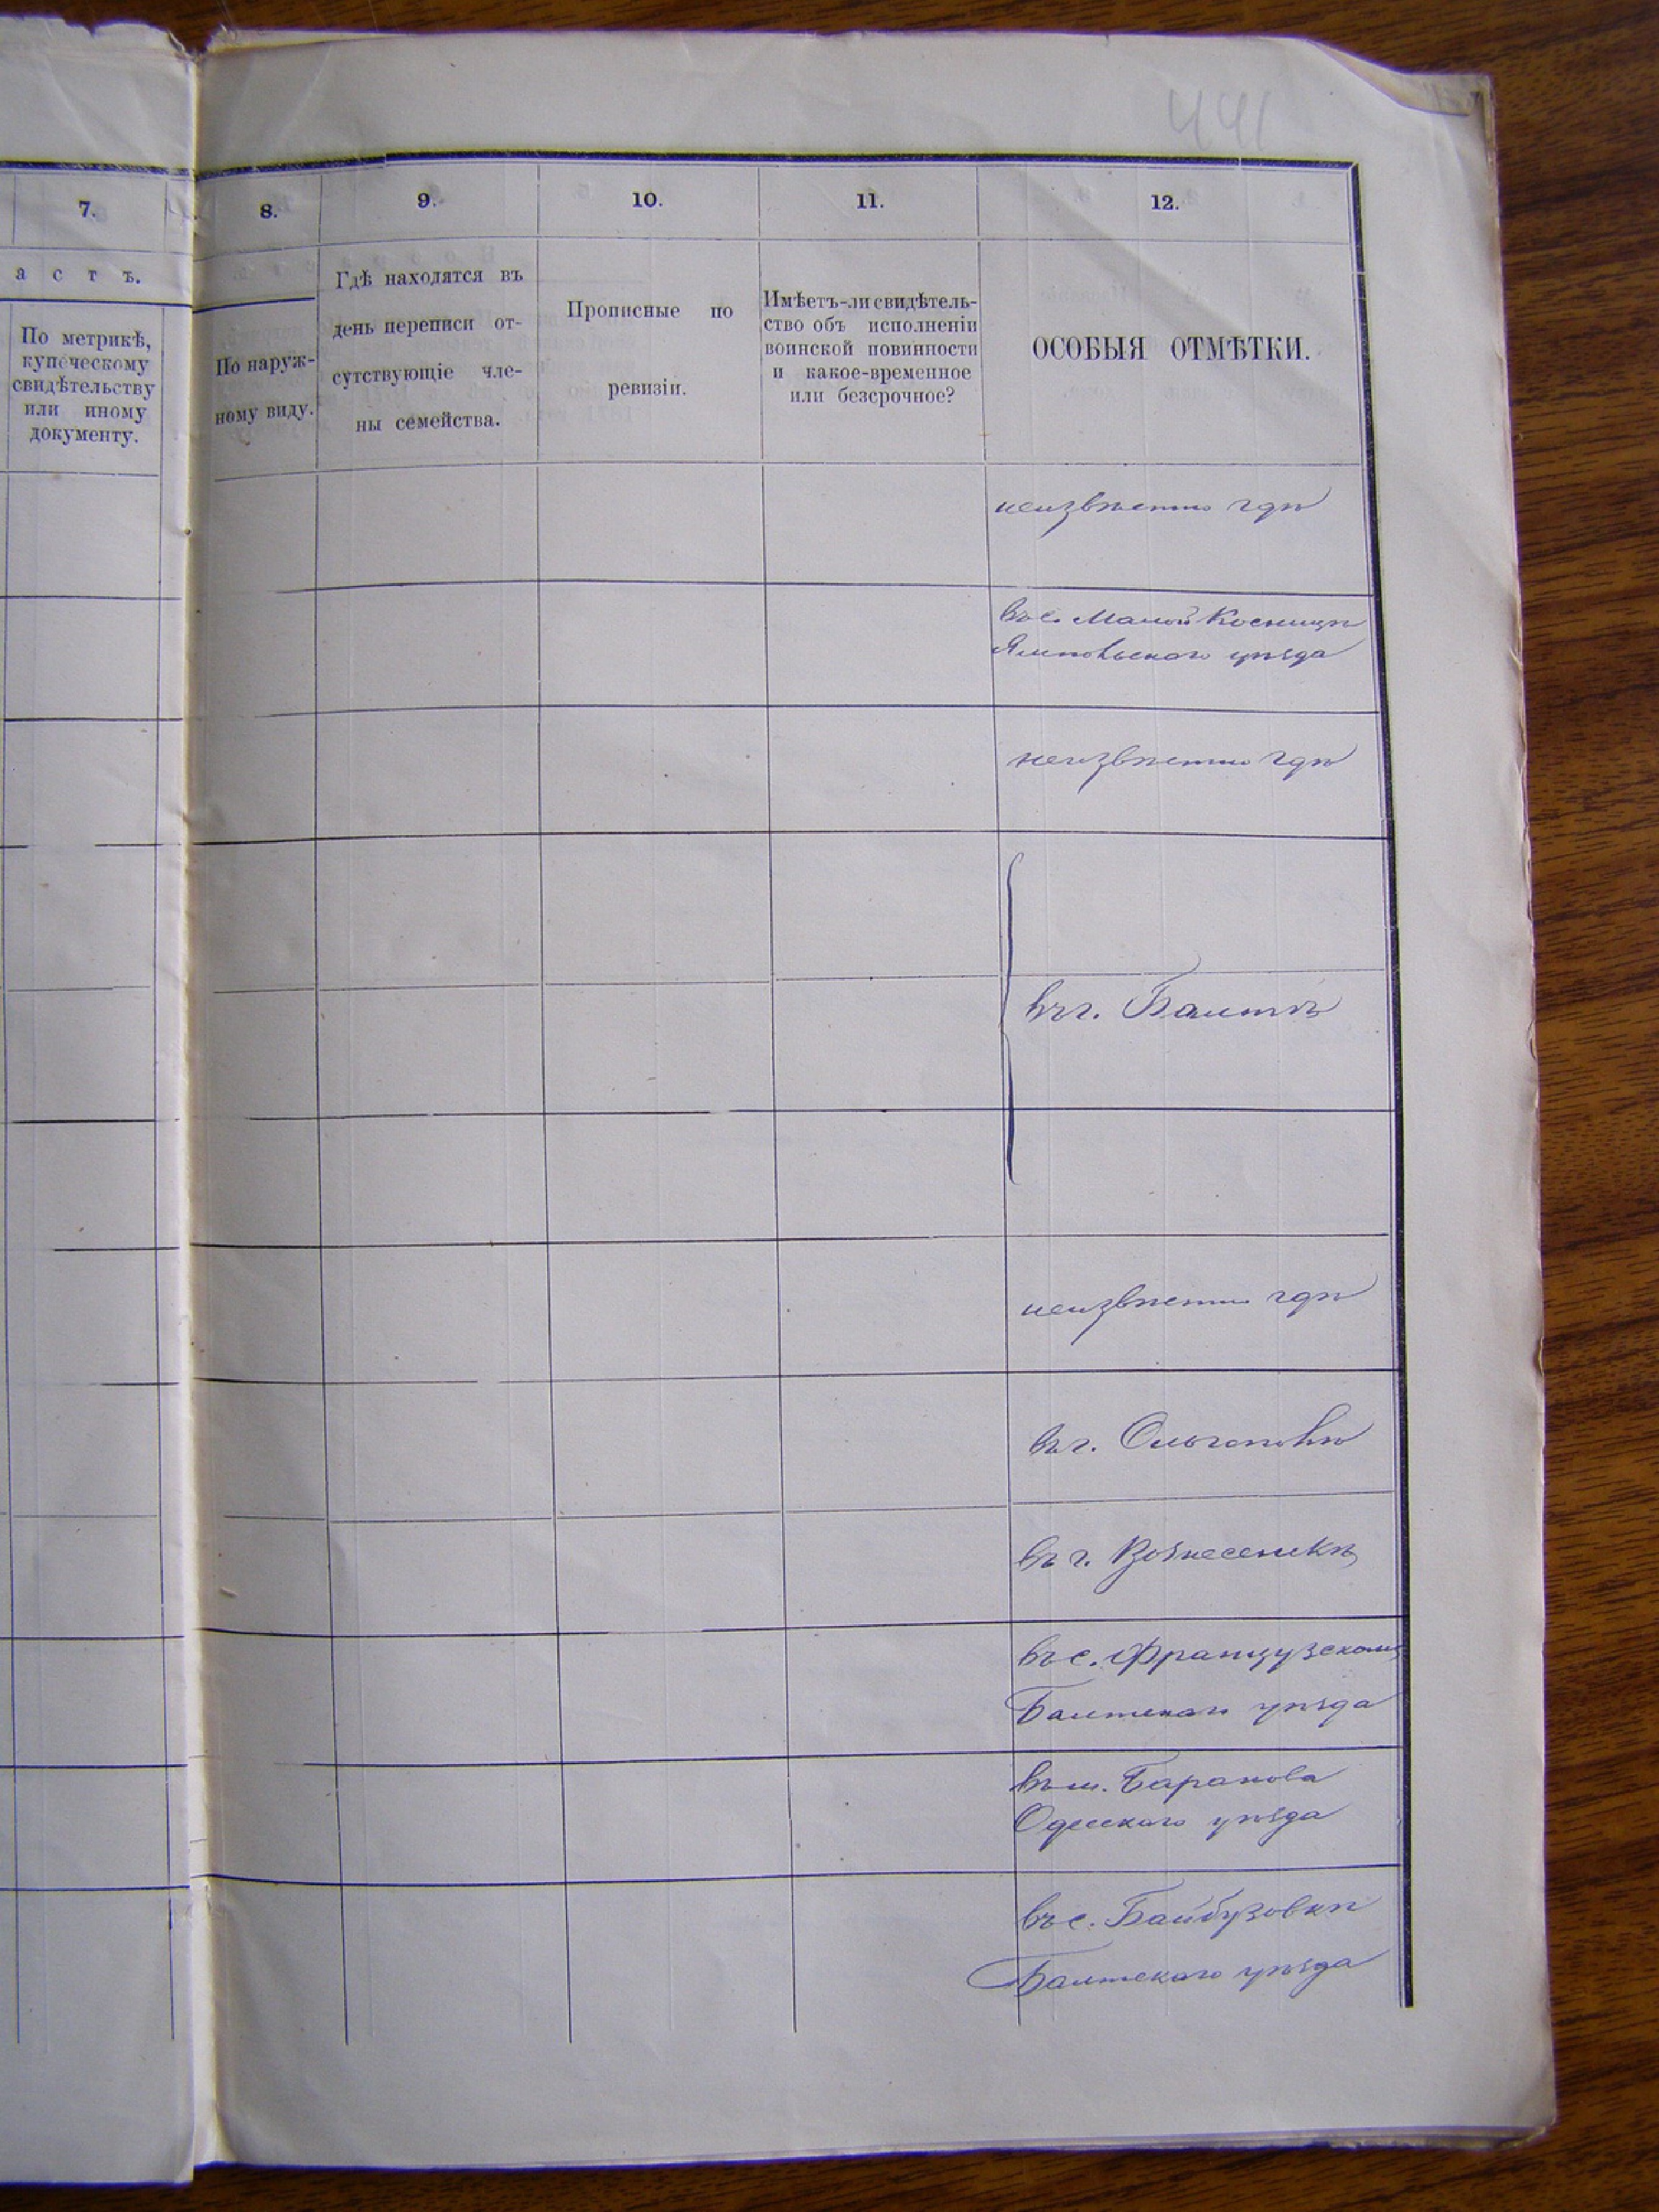 441
7.
8.
9.
10.
11.
12.
а с т ъ.
По метрикѣ,
купеческому
свидѣтельству
или иному
документу.
По наруж-
ному виду.
Гдѣ находятся въ
день переписи от-
сутствующіе чле-
ны семейства.
Прописные по
ревизіи.
Имѣетъ-ли свидѣтель-
ство объ исполненіи
воинской повинности
и какое-временное
или безсрочное?
ОСОБЫЯ ОТМѢТКИ.
неизвѣстно гдѣ
въ с. Малой Косницѣ
Ямпольскаго уѣзда
неизвѣстно гдѣ
въ г. Балтѣ
неизвѣстно гдѣ
въ г. Ольгополѣ
въ г. Вознесенскѣ
въ с. Французскомъ
Балтскаго уѣзда
въ м. Баранова
Одесскаго уѣзда
въ с. Байбузовкѣ
Балтскаго уѣзда